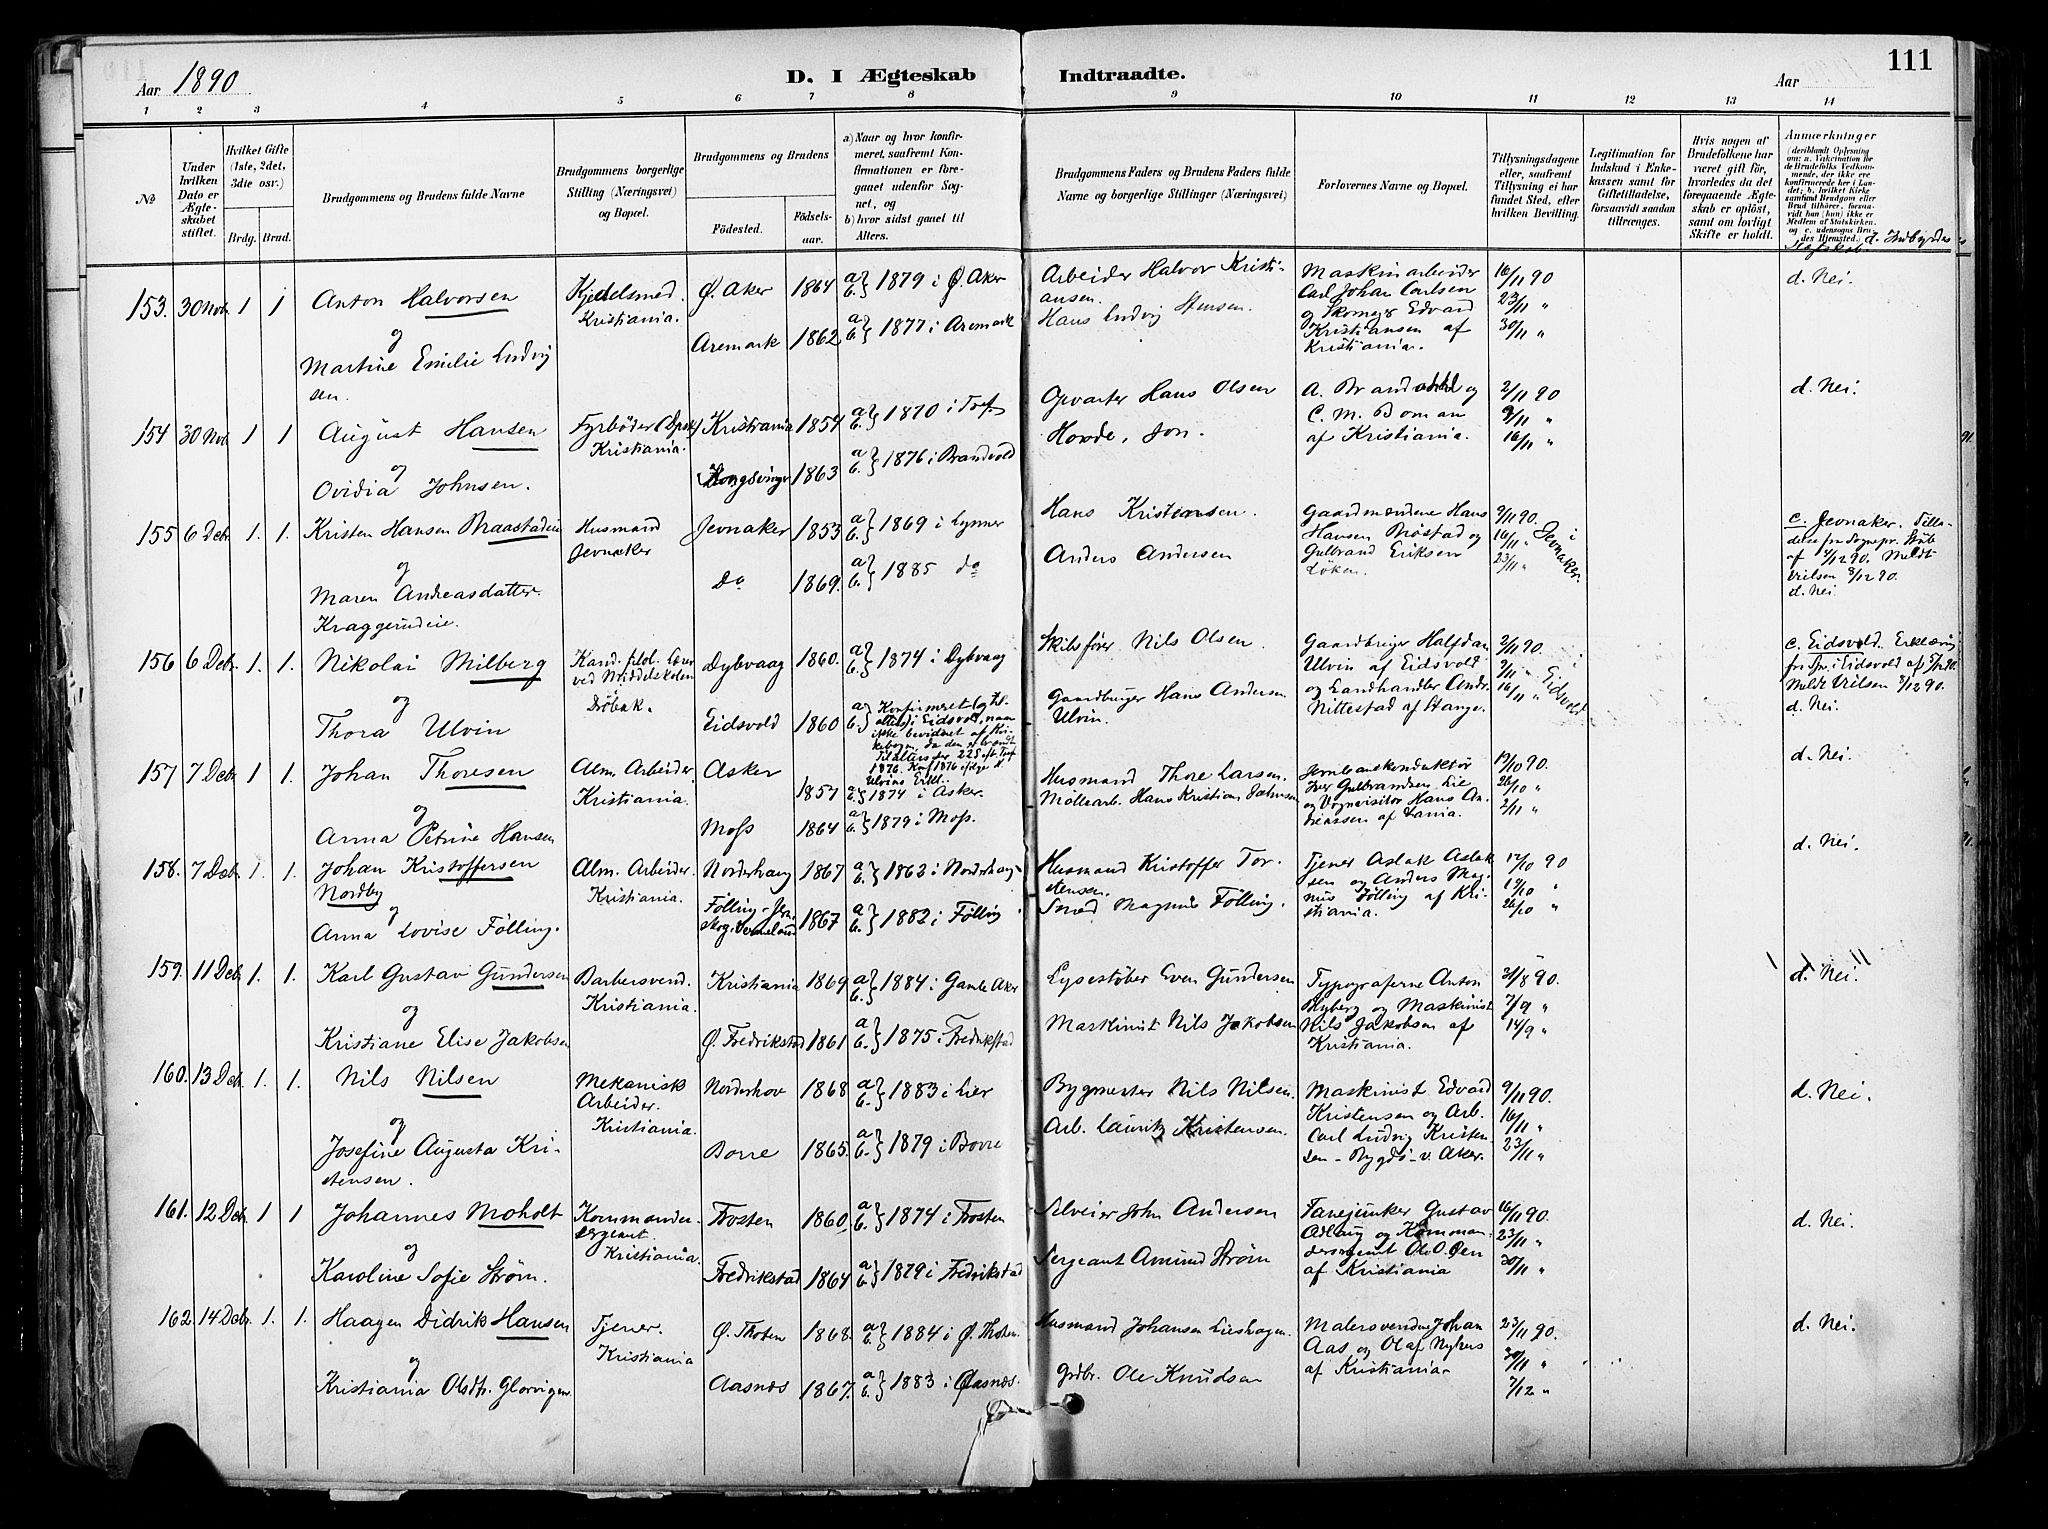 Aar 1890
D. I Ægteskab Indtraadte.
Aar
111
1 2 3 4 5 6 7 8 9 10 11 12 13 14
№
Under hvilken Dato er Ægteskabet stiftet.
Hvilket Gifte (1ste, 2det, 3die osv.)
Brdg. Brud.
Brudgommens og Brudens fulde Navne
Brudgommens borgerlige Stilling (Næringsvei) og Bopæl.
Brudgommens og Brudens
Fødested.
Fødselsaar.
a) Naar og hvor konfirmeret, saafremt Konfirmationen er foregaaet udenfor Sognet, og
b) hvor sidst gaaet til Alters.
Brudgommens Faders og Brudens Faders fulde Navne og borgerlige Stillinger (Næringsvei)
Forlovernes Navne og Bopæl.
Tillysningsdagene eller, saafremt Tillysning ei har fundet Sted, efter hvilken Bevilling.
Legitimation for Indskud i Enkekassen samt for Giftetilladelse, forsaavidt saadan tiltrænges.
Hvis nogen af Brudefolkene har været gift før, hvorledes da det foregaaende Ægteskab er opløst, samt om lovligt Skifte er holdt.
Anmærkninger (deriblandt Oplysning om: a. Vakcination for de Brudefolks Vedkommende, der ikke ere konfirmerede her i Landet; b. hvilket Kirkesamfund Brudgom eller Brud tilhører, forsaavidt han (hun) ikke er Medlem af Statskirken og c. udensogns Brudes Hjemsted.)
153. 30 Nov. 1 1
Anton Halvorsen
og
Martine Emilie Ludvigsen.
Kjedelsmed.
Kristiania.
Ø. Aker 1864 a b } 1879 i Ø. Aker
Aremark 1862 a b } 1877 i Aremark
Arbeider Halvor Kristiansen.
Hans Ludvig Hensen.
Maskinarbeider
Carl Johan Carlsen
og Skomagr Edvard
Kristiansen af
Kristiania.
16/11 90
23/11 "
30/11 "
d. Nei.
154 30 Nov. 1 1
August Hansen
og
Ovidia Johnsen.
Fyrbøder
Kristiania.
Kristiania 1854 a b } 1870 i Tref.
Kongsvinger 1863 a b } 1876 i Brandvold
Opvarter Hans Olsen
Hovde, Jon.
A. Brandvold og
C. M. Boman
af Kristiania.
2/11 90
9/11 "
16/11 "
d. Nei.
155 6 Debr. 1. 1.
Kristen Hansen Braastadeie
og
Maren Andreasdatter
Kraggerudeie.
Husmand
Jevnaker
Jevnaker 1853 a b } 1869 i Lynner
Do 1869. a b } 1885 do
Hans Kristiansen.
Anders Andersen
Gaardmændene Hans
Hansen Brøstad og
Gulbrand Eriksen
Løken.
9/11 90.
16/11 "
23/11 "
i Jevnaker.
c. Jevnaker. Tilladelse fra Sognepr.
af 4/12 90. Meldt
8/12 90.
d. Nei
156 6 Debr. 1. 1.
Nikolai Milberg
og
Thora Ulvin
Kand. filol. Lærer
ved Middelskolen
Drøbak.
Dybvaag 1860. a b } 1874 i Dybvaag
Eidsvold 1860 a b } Konfirmeret
Skibsfører Nils Olsen
Gaardbruger Hans Andersen
Ulvin.
Gaardbruger Halfdan
Ulvin af Eidsvold
og Landhandler Andr.
Nittestad af Stange.
2/11 90.
9/11 "
16/11 "
i Eidsvold
c. Eidsvold. Erklæring
fra Spr. i Eidsvold af 5/12 90.
Meldt 8/12 90.
d. Nei.
157 7 Debr. 1 1.
Johan Thoresen
og
Anna Petrine Hansen
Alm. Arbeider
Kristiania.
Asker 1857 a b } 1874 i Asker.
Moss 1864 a b } 1879 i Moss.
Husmand Thore Larsen.
Møllearb. Hans Kristian Johnsen
Jernbanekonduktør
Iver Gulbrandsen Lie
og Vognvisitør Hans Andreassen
19/10 90.
26/10 "
2/11 "
d. Nei.
158. 7 Debr. 1. 1.
Johan Kristoffersen
Nordby
og
Anna Lovise Følling.
Alm. Arbeider.
Kristiania.
Norderhaug 1867 a b } 1862 i Norderhaug
Følling 1867 a b } 1882 i Følling
Husmand Kristoffer Torstensen.
Smed Magnus Følling.
Tjener Aslak Aslaksen og Anders Magnus Følling af Kristiania.
12/10 90
19/10 "
26/10 "
d. Nei.
159. 11 Debr. 1. 1.
Karl Gustav Gundersen
og
Kristiane Elise Jakobsen
Barbersvend.
Kristiania.
Kristiania 1869 a b } 1884 i Gamle Aker
Ø. Fredrikstad 1861 a b } 1875 i Fredrikstad
Lysestøber Even Gundersen
Maskinist Nils Jakobsen
Typograferne Anton
Myberg og Maskinist
Nils Jakobsen af
Kristiania.
31/8 90.
7/9 "
14/9 "
d. Nei.
160. 13 Debr. 1. 1.
Nils Nilsen
og
Josefine Augusta Kristensen.
Mekanisk
Arbeider.
Kristiania.
Norderhov 1868 a b } 1883 i Lier
Borre 1865. a b } 1879 i Borre
Bygmester Nils Nilsen.
Arb. Lauritz Kristensen.
Maskinist Edvard
Kristensen og Arb.
Carl Ludvig Kristensen - Bygdø - v. Aker.
9/11 90.
16/11 "
23/11 "
d. Nei.
161. 12 Debr. 1 1
Johannes Moholt
og
Karoline Sofie Strøm.
Kommandersergeant
Kristiania
Frosten 1860 a b } 1874 i Frosten
Fredrikstad 1864 a b } 1879 i Fredrikstad
Selveier John Andersen
Sergeant Amund Strøm
Fanejunker Gustav
og Kommandersergeant Ole O. Øien
af Kristiania
16/11 90.
23/11 "
30/11 "
d. Nei.
162. 14 Debr. 1. 1.
Haagen Didrik Hansen
og
Kristiania Olsdtr. Glorvigen
Tjener.
Kristiania
Ø. Thoten 1868. a b } 1884 i Ø. Thoten
Aasnæs 1867. a b } 1883 i Aasnæs.
Husmand Johansen Lieshagen.
Grdbr. Ole Knudsen
Malersvendne Johan
Aas og Olaf Nyhus
af Kristiania.
23/11 90.
30/11 "
7/12 "
d. Nei.